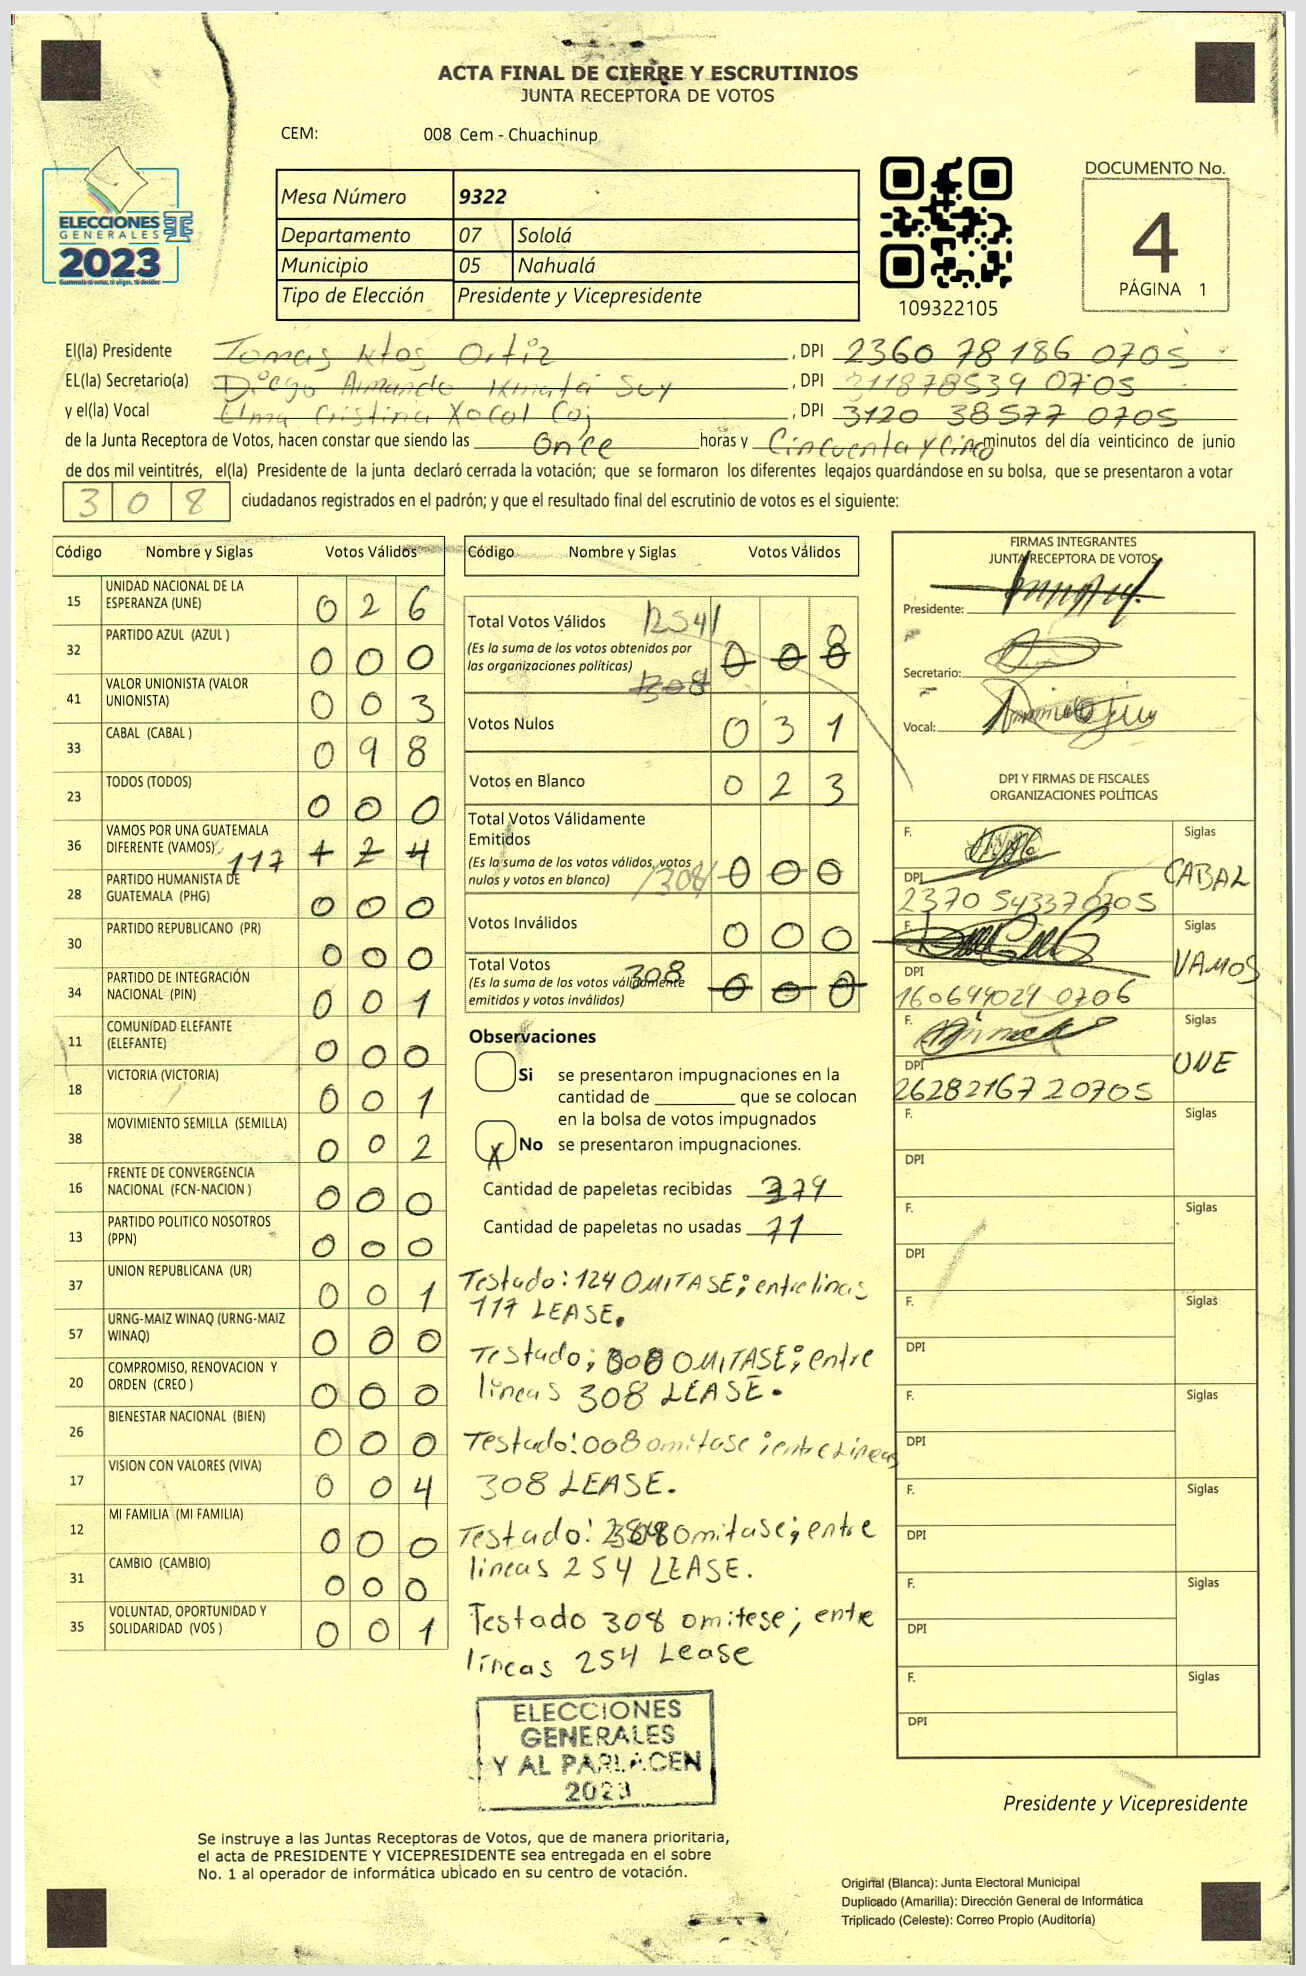 ACTA FINAL DE CIERRE Y ESCRUTINIOS
JUNTA RECEPTORA DE VOTOS
CEM: 008 Cem - Chuachinup
ELECCIONES
GENERALES
2023
Mesa Número 9322
Departamento 07 Sololá
Municipio 05 Nahualá
Tipo de Elección Presidente y Vicepresidente
109322105
DOCUMENTO No.
4
PÁGINA 1
El(la) Presidente Tomas Ixtos Ortiz , DPI 2360 78186 0705
EL(la) Secretario(a) Diego Armando Suy , DPI 311878539 0705
y el(la) Vocal Elma Cristina Xocol Coj , DPI 3120 38577 0705
de la Junta Receptora de Votos, hacen constar que siendo las Once horas y Cincuenta y Cinco minutos del día veinticinco de junio
de dos mil veintitrés, el(la) Presidente de la junta declaró cerrada la votación; que se formaron los diferentes legajos guardándose en su bolsa, que se presentaron a votar
308 ciudadanos registrados en el padrón; y que el resultado final del escrutinio de votos es el siguiente:
Código Nombre y Siglas Votos Válidos
15 UNIDAD NACIONAL DE LA
ESPERANZA (UNE) 0 2 6
32 PARTIDO AZUL (AZUL ) 0 0 0
41 VALOR UNIONISTA (VALOR
UNIONISTA) 0 0 3
33 CABAL (CABAL ) 0 9 8
23 TODOS (TODOS) 0 0 0
36 VAMOS POR UNA GUATEMALA
DIFERENTE (VAMOS) 117 1 2 4
28 PARTIDO HUMANISTA DE
GUATEMALA (PHG) 0 0 0
30 PARTIDO REPUBLICANO (PR) 0 0 0
34 PARTIDO DE INTEGRACIÓN
NACIONAL (PIN) 0 0 1
11 COMUNIDAD ELEFANTE
(ELEFANTE) 0 0 0
18 VICTORIA (VICTORIA) 0 0 1
38 MOVIMIENTO SEMILLA (SEMILLA) 0 0 2
16 FRENTE DE CONVERGENCIA
NACIONAL (FCN-NACION ) 0 0 0
13 PARTIDO POLITICO NOSOTROS
(PPN) 0 0 0
37 UNION REPUBLICANA (UR) 0 0 1
57 URNG-MAIZ WINAQ (URNG-MAIZ
WINAQ) 0 0 0
20 COMPROMISO, RENOVACION Y
ORDEN (CREO ) 0 0 0
26 BIENESTAR NACIONAL (BIEN) 0 0 0
17 VISION CON VALORES (VIVA) 0 0 4
12 MI FAMILIA (MI FAMILIA) 0 0 0
31 CAMBIO (CAMBIO) 0 0 0
35 VOLUNTAD, OPORTUNIDAD Y
SOLIDARIDAD (VOS ) 0 0 1
Código Nombre y Siglas Votos Válidos
Total Votos Válidos 254 0
(Es la suma de los votos obtenidos por 0 0 8
las organizaciones políticas) 308
Votos Nulos 0 3 1
Votos en Blanco 0 2 3
Total Votos Válidamente
Emitidos
(Es la suma de los votos válidos, votos
nulos y votos en blanco) 308 0 0 0
Votos Inválidos 0 0 0
Total Votos 308
(Es la suma de los votos válidamente
emitidos y votos inválidos) 0 0 0
Observaciones
Si se presentaron impugnaciones en la
cantidad de ________ que se colocan
en la bolsa de votos impugnados
X No se presentaron impugnaciones.
Cantidad de papeletas recibidas 379
Cantidad de papeletas no usadas 71
Testado: 124 OMITASE; entrelineas
117 LEASE.
Testado; 308 OMITASE; entre
lineas 308 LEASE.
Testado: 008 omitase ; entre Lineas
308 LEASE.
Testado: omitase; entre
lineas 254 LEASE.
Testado 308 omitese; entre
líneas 254 Lease
ELECCIONES
GENERALES
Y AL PARLACEN
2023
FIRMAS INTEGRANTES
JUNTA RECEPTORA DE VOTOS
Presidente:
Secretario:
Vocal:
DPI Y FIRMAS DE FISCALES
ORGANIZACIONES POLÍTICAS
F. Siglas
CABAL
DPI
2370 54337 0705
F. Siglas
VAMOS
DPI
160649029 0706
F. Siglas
UNE
DPI
26282167 20705
F. Siglas
DPI
F. Siglas
DPI
F. Siglas
DPI
F. Siglas
DPI
F. Siglas
DPI
F. Siglas
DPI
F. Siglas
DPI
Presidente y Vicepresidente
Se instruye a las Juntas Receptoras de Votos, que de manera prioritaria,
el acta de PRESIDENTE Y VICEPRESIDENTE sea entregada en el sobre
No. 1 al operador de informática ubicado en su centro de votación.
Original (Blanca): Junta Electoral Municipal
Duplicado (Amarilla): Dirección General de Informática
Triplicado (Celeste): Correo Propio (Auditoría)